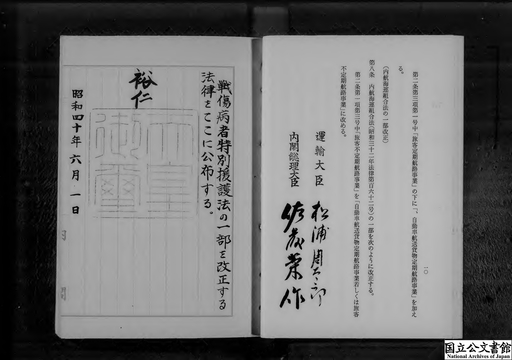 第二条第三項第一号中「旅客定期航路事業」の下に「、自動車航送貨物定期航路事業」を加え
る。
(内航海運組合法の一部改正)
第八条 内航海運組合法(昭和三十二年法律第百六十二号)の一部を次のように改正する。
第二条第一項第三号中「旅客不定期航路事業」を「自動車航送貨物定期航路事業若しくは旅客
不定期航路事業」に改める。
一〇
運輸大臣 松浦周太郎
内閣総理大臣 佐藤榮作
戦傷病者特別援護法の一部を改正する
法律をここに公布する。
裕仁
昭和四十年六月一日
国立公文書館
National Archives of Japan